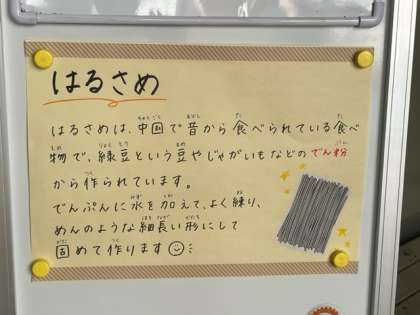 はるさめ
はるさめは、中国で昔から食べられている食べ
物で、緑豆という豆やじゃがいもなどのでん粉
から作られています。
でんぷんに水を加えて、よく練り、
めんのような細長い形にして
固めて作ります